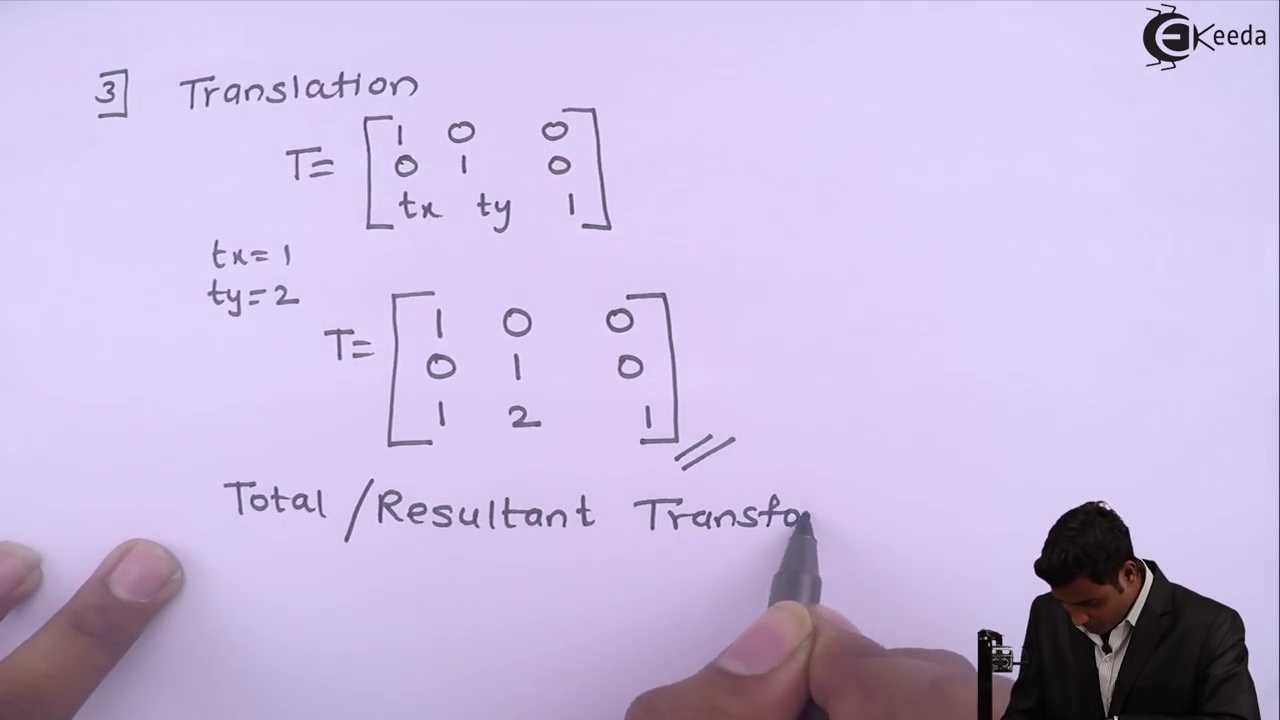 Keeda
3] Translation
T= [1 0 0
0 1 0
tx ty 1]
tx=1
ty=2
T= [1 0 0
0 1 0
1 2 1]
Total /Resultant Transfo